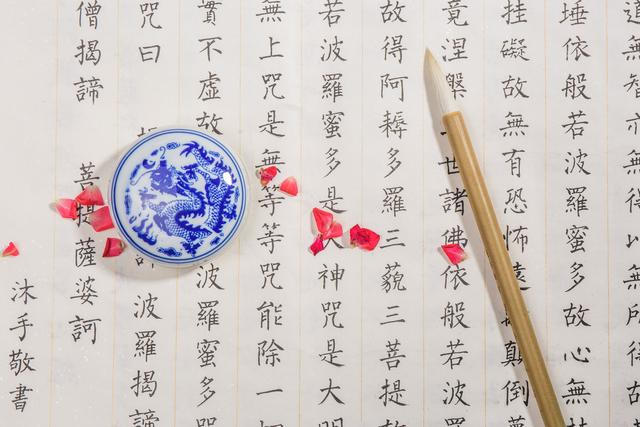 道無智亦無得以無所得故
埵依般若波羅蜜多故心無
挂礙故無有恐怖遠顛倒夢
竟涅槃世諸佛依般若波羅
故得阿耨多羅三藐三菩提故
若波羅蜜多是大神咒是大明
無上咒是無等等咒能除一切
實不虛故波羅蜜多咒
咒曰波羅揭諦
僧揭諦 菩提薩婆訶
沐手敬書